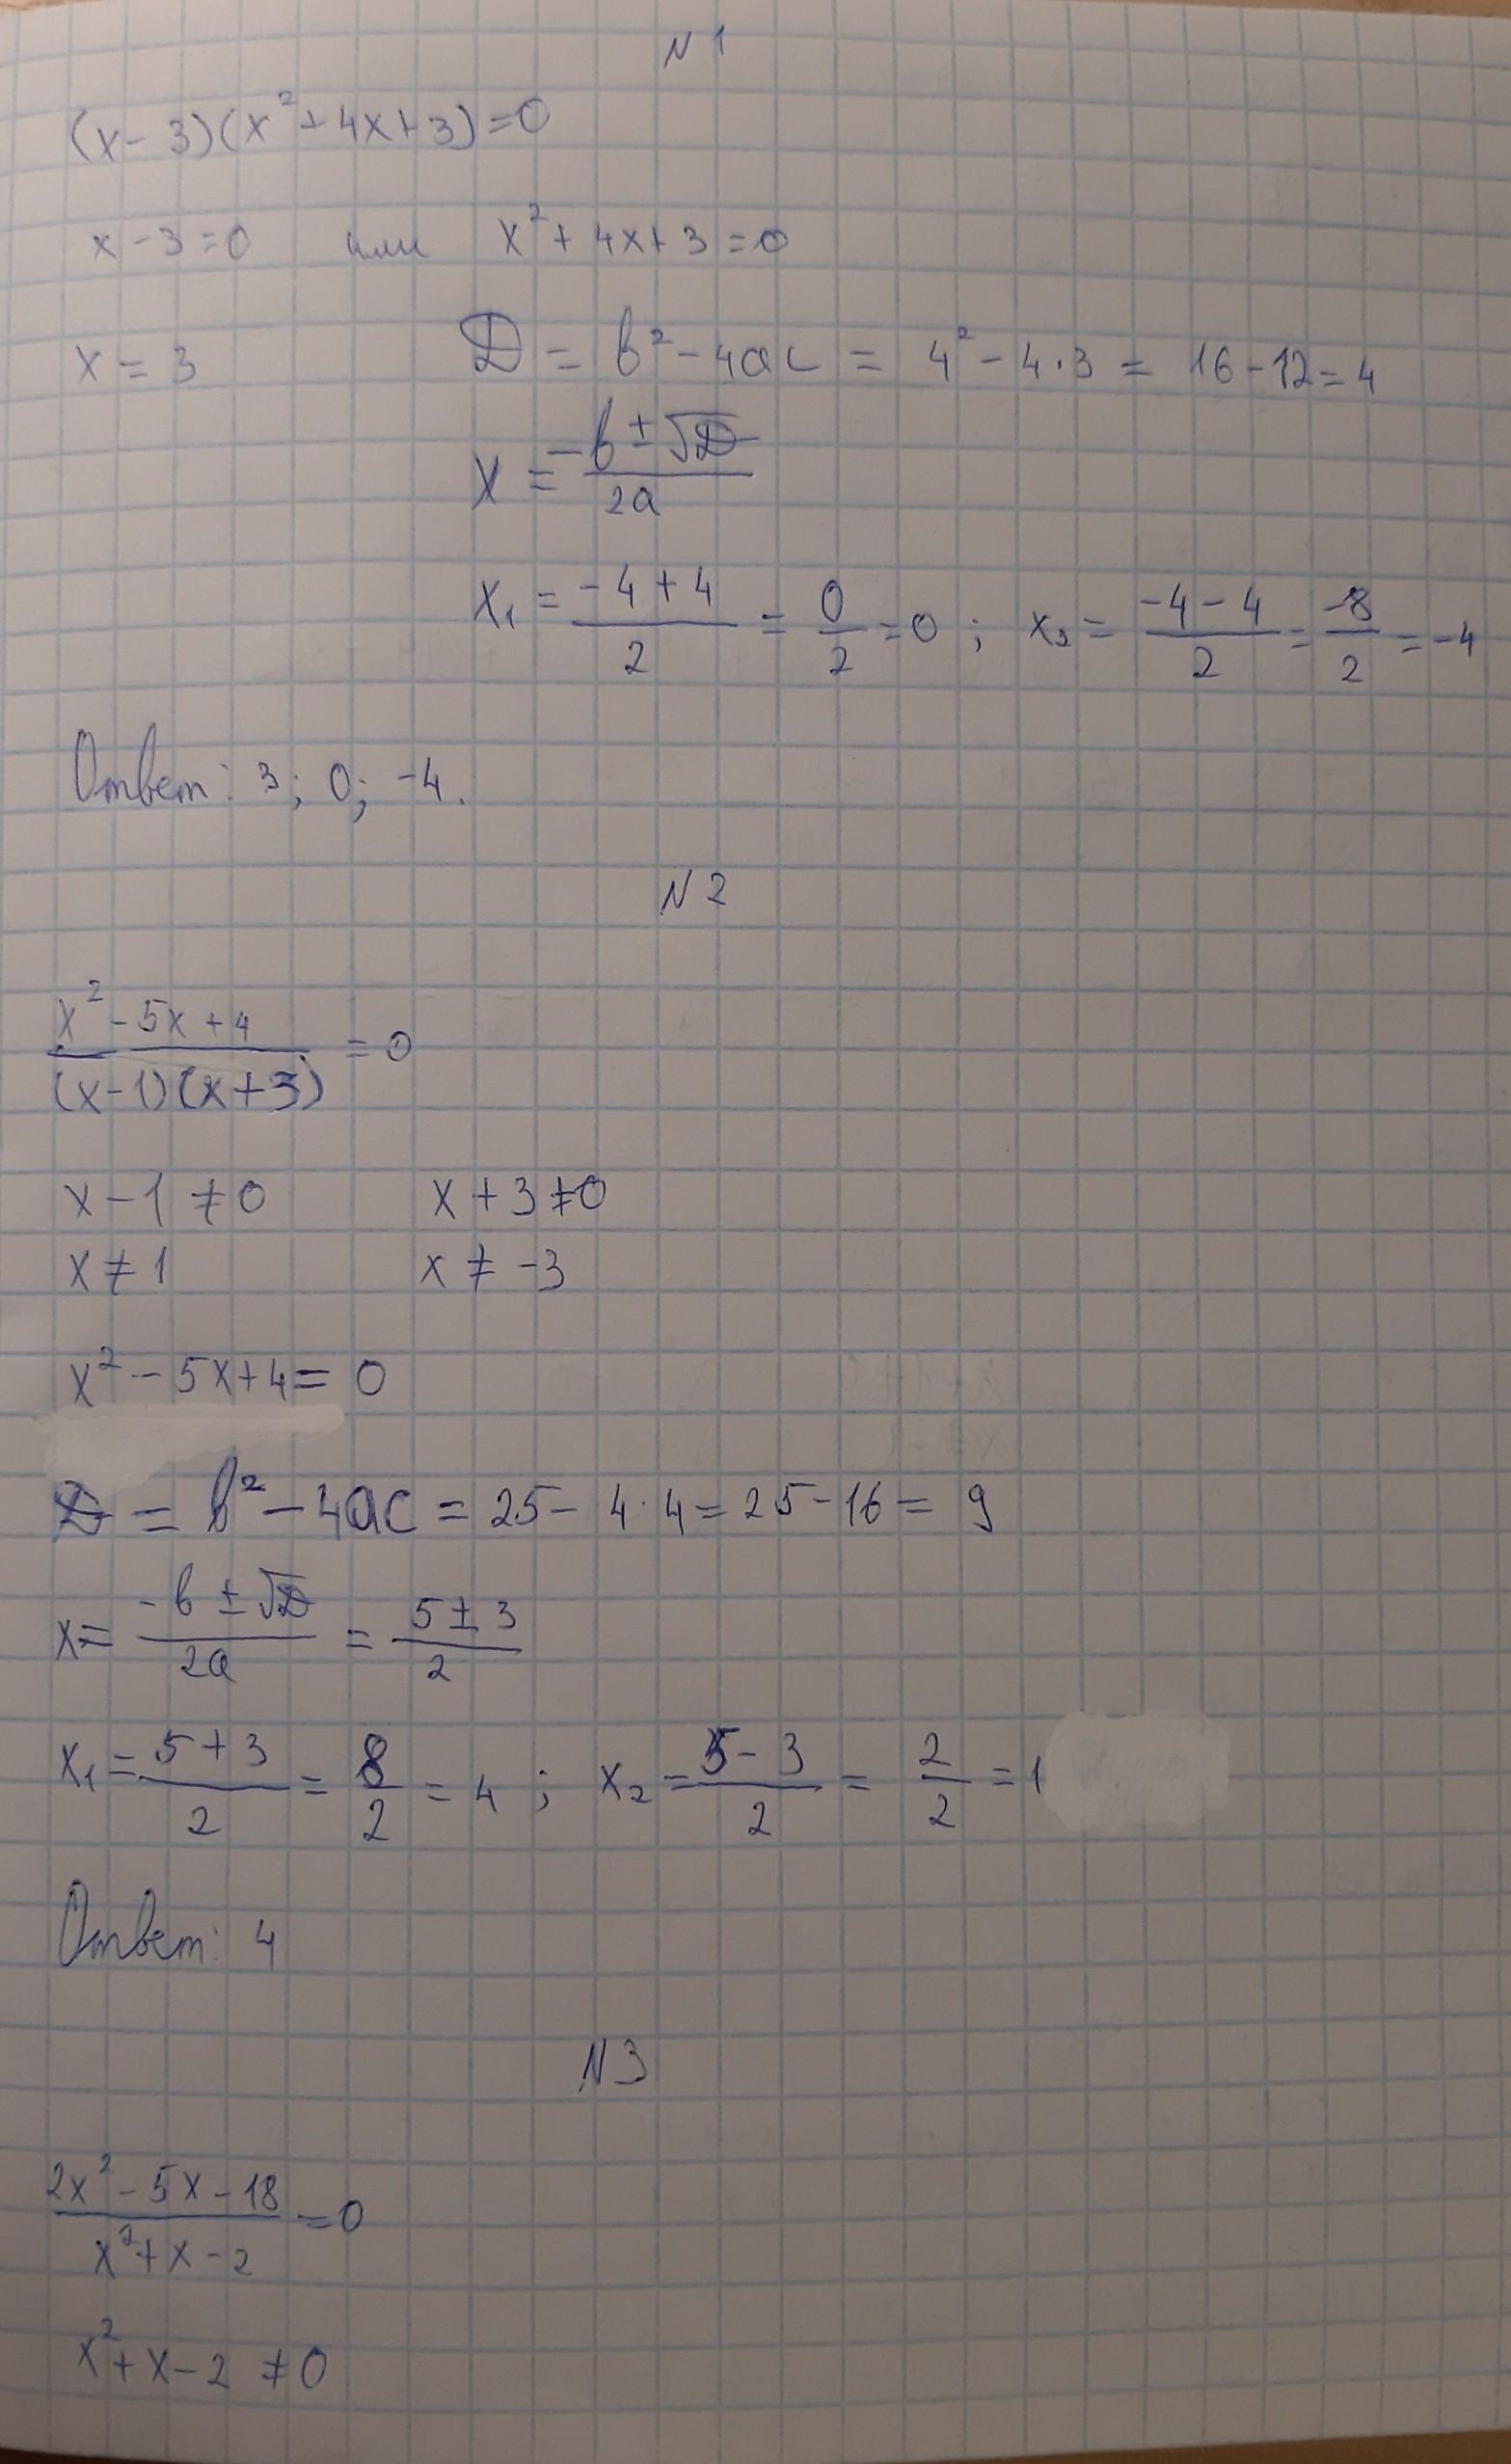 N 1
(x-3)(x²+4x+3)=0
x-3=0 или x²+4x+3=0
x=3 D = b²-4ac = 4²-4·3 = 16-12=4
x = (-b±√D)/2a
x₁ = (-4+4)/2 = 0/2 = 0 ; x₂ = (-4-4)/2 = -8/2 = -4
Ответ: 3; 0; -4.
N 2
(x²-5x+4)/((x-1)(x+3)) = 0
x-1≠0 x+3≠0
x≠1 x≠-3
x²-5x+4=0
D = b²-4ac = 25-4·4 = 25-16 = 9
x = (-b±√D)/2a = (5±3)/2
x₁ = (5+3)/2 = 8/2 = 4 ; x₂ = (5-3)/2 = 2/2 = 1
Ответ: 4
N 3
(2x²-5x-18)/(x²+x-2) = 0
x²+x-2≠0